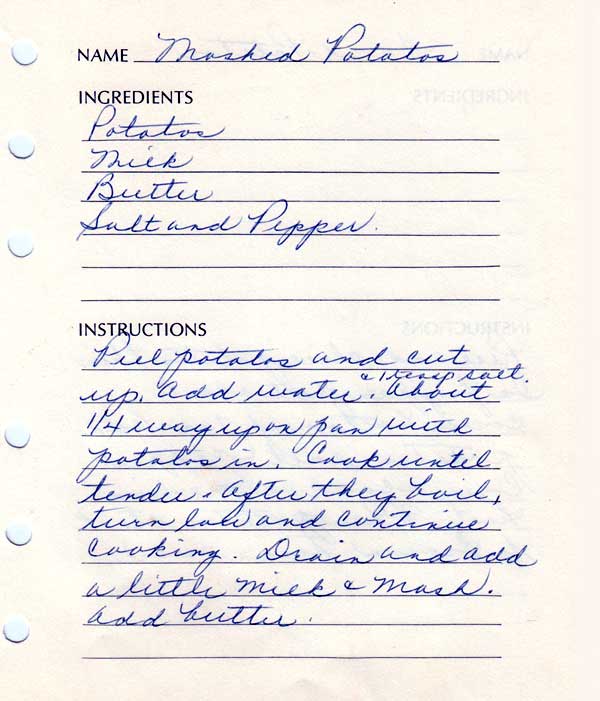 NAME Mashed Potatos
INGREDIENTS
Potatos
Milk
Butter
Salt and Pepper.
INSTRUCTIONS
Peel potatos and cut
& 1 teasp salt.
up. Add water. About
1/4 way up on pan with
potatos in. Cook until
tender. After they boil,
turn low and continue
cooking. Drain and add
a little milk & Mash.
Add butter.